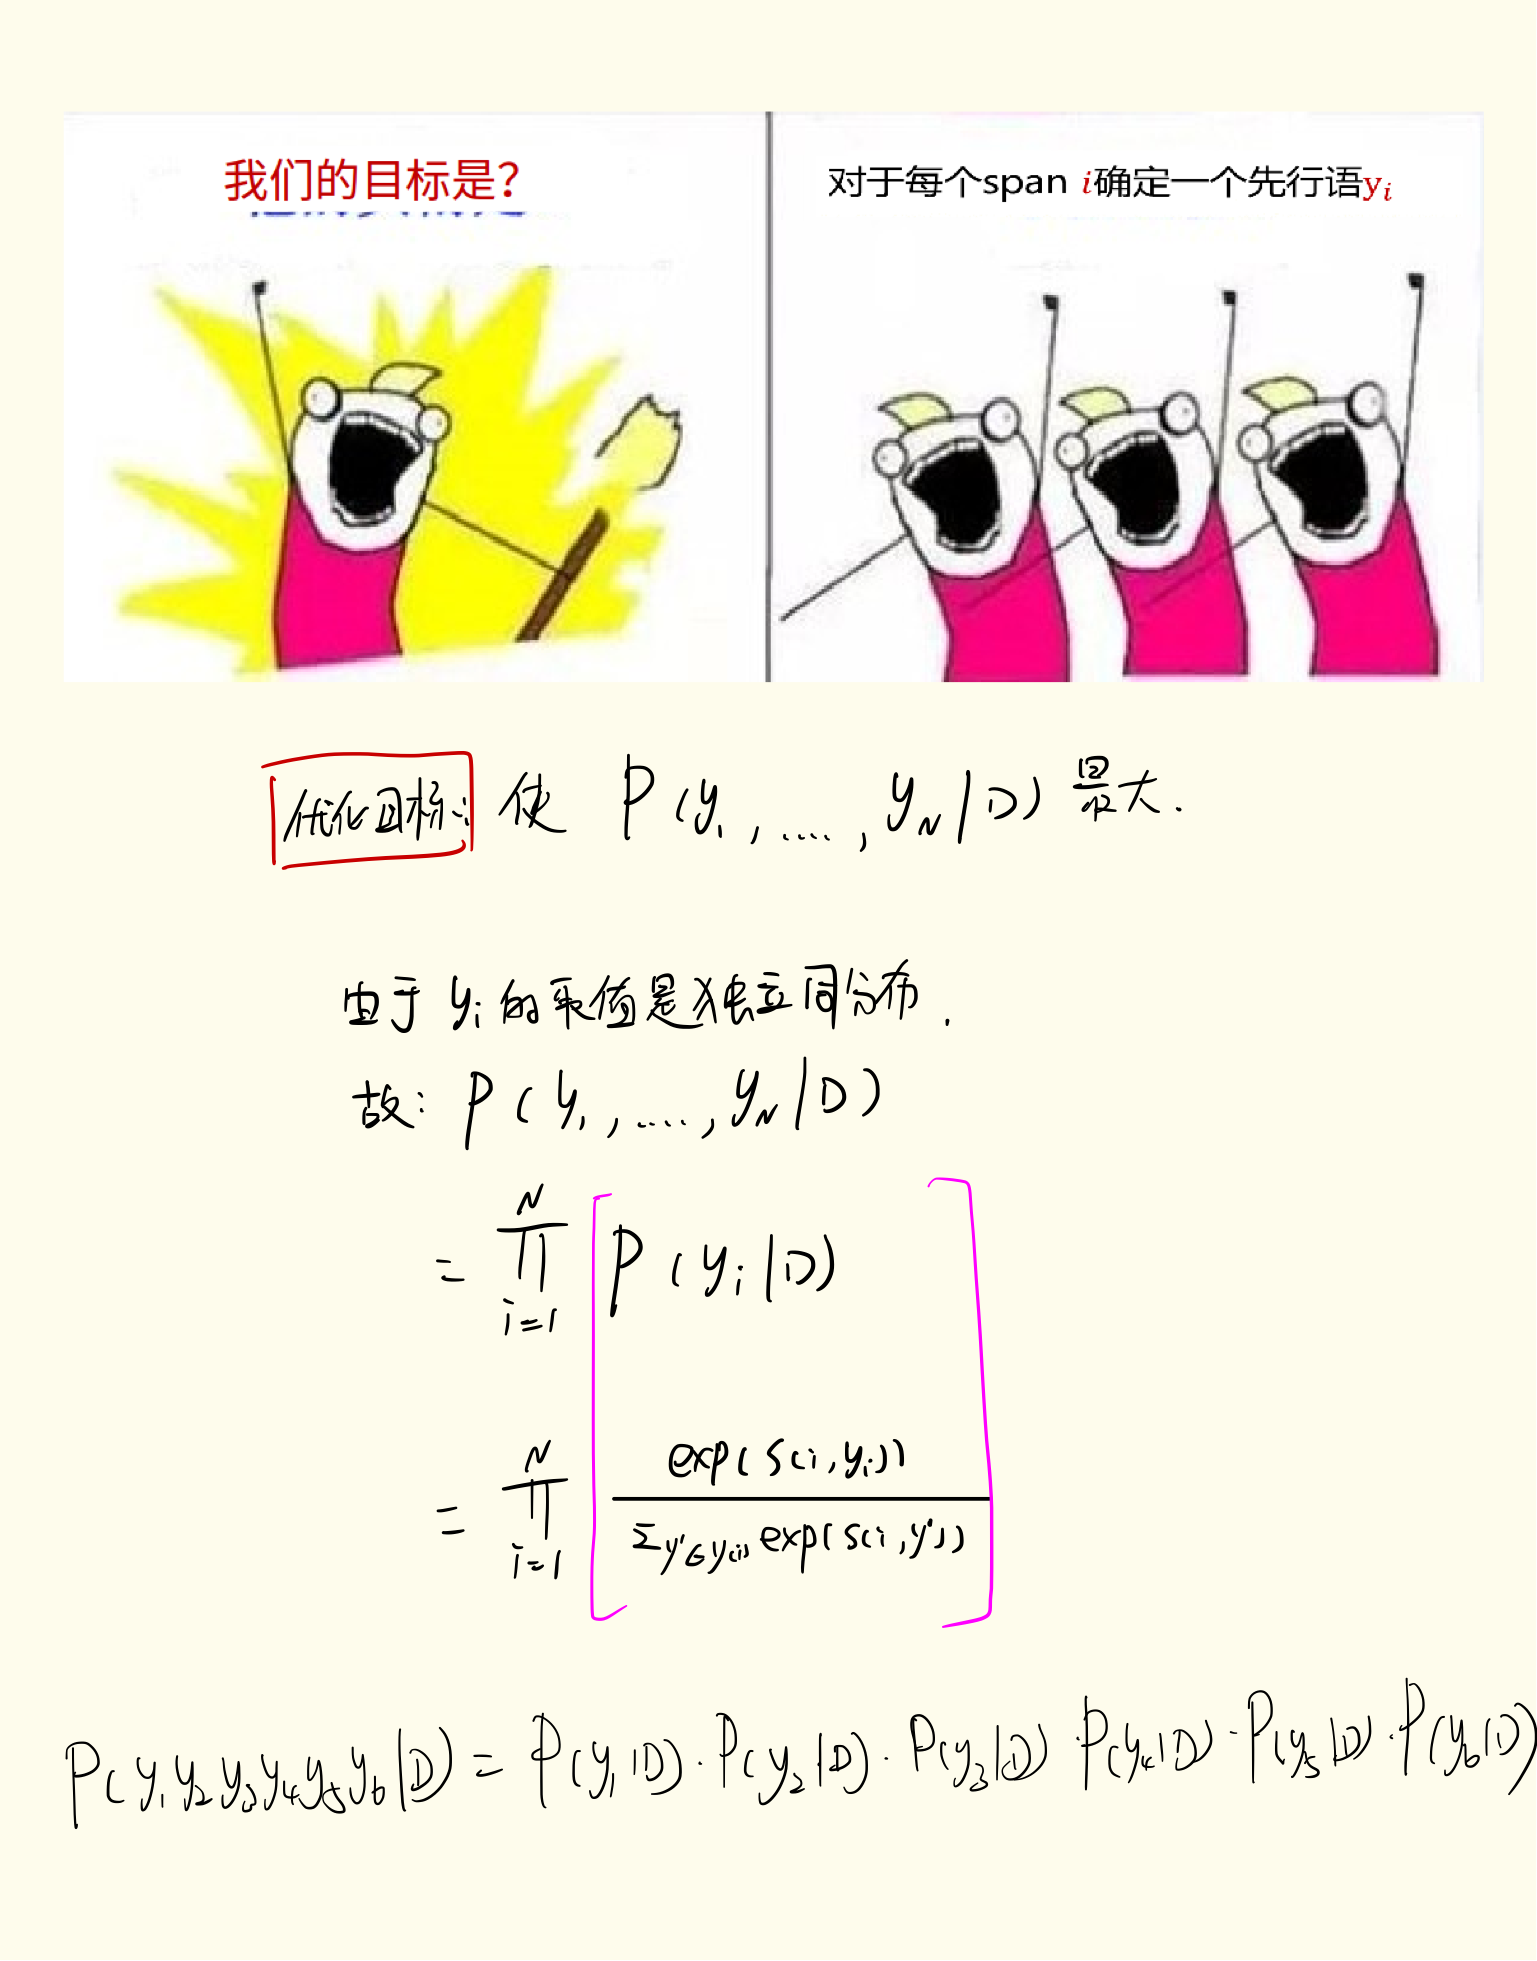 我们的目标是?
对于每个span i确定一个先行语yᵢ
优化目标: 使 P(y₁, ...., y_N|D) 最大.
由于 yᵢ 的取值是独立同分布.
故: P(y₁, ...., y_N|D)
= ∏_{i=1}^{N} [P(yᵢ|D)
= ∏_{i=1}^{N} exp(s(i,yᵢ)) / Σ_{y'∈y(i)} exp(s(i,y'))]
P(y₁y₂y₃y₄y₅y₆|D) = P(y₁|D)·P(y₂|D)·P(y₃|D)·P(y₄|D)·P(y₅|D)·P(y₆|D)